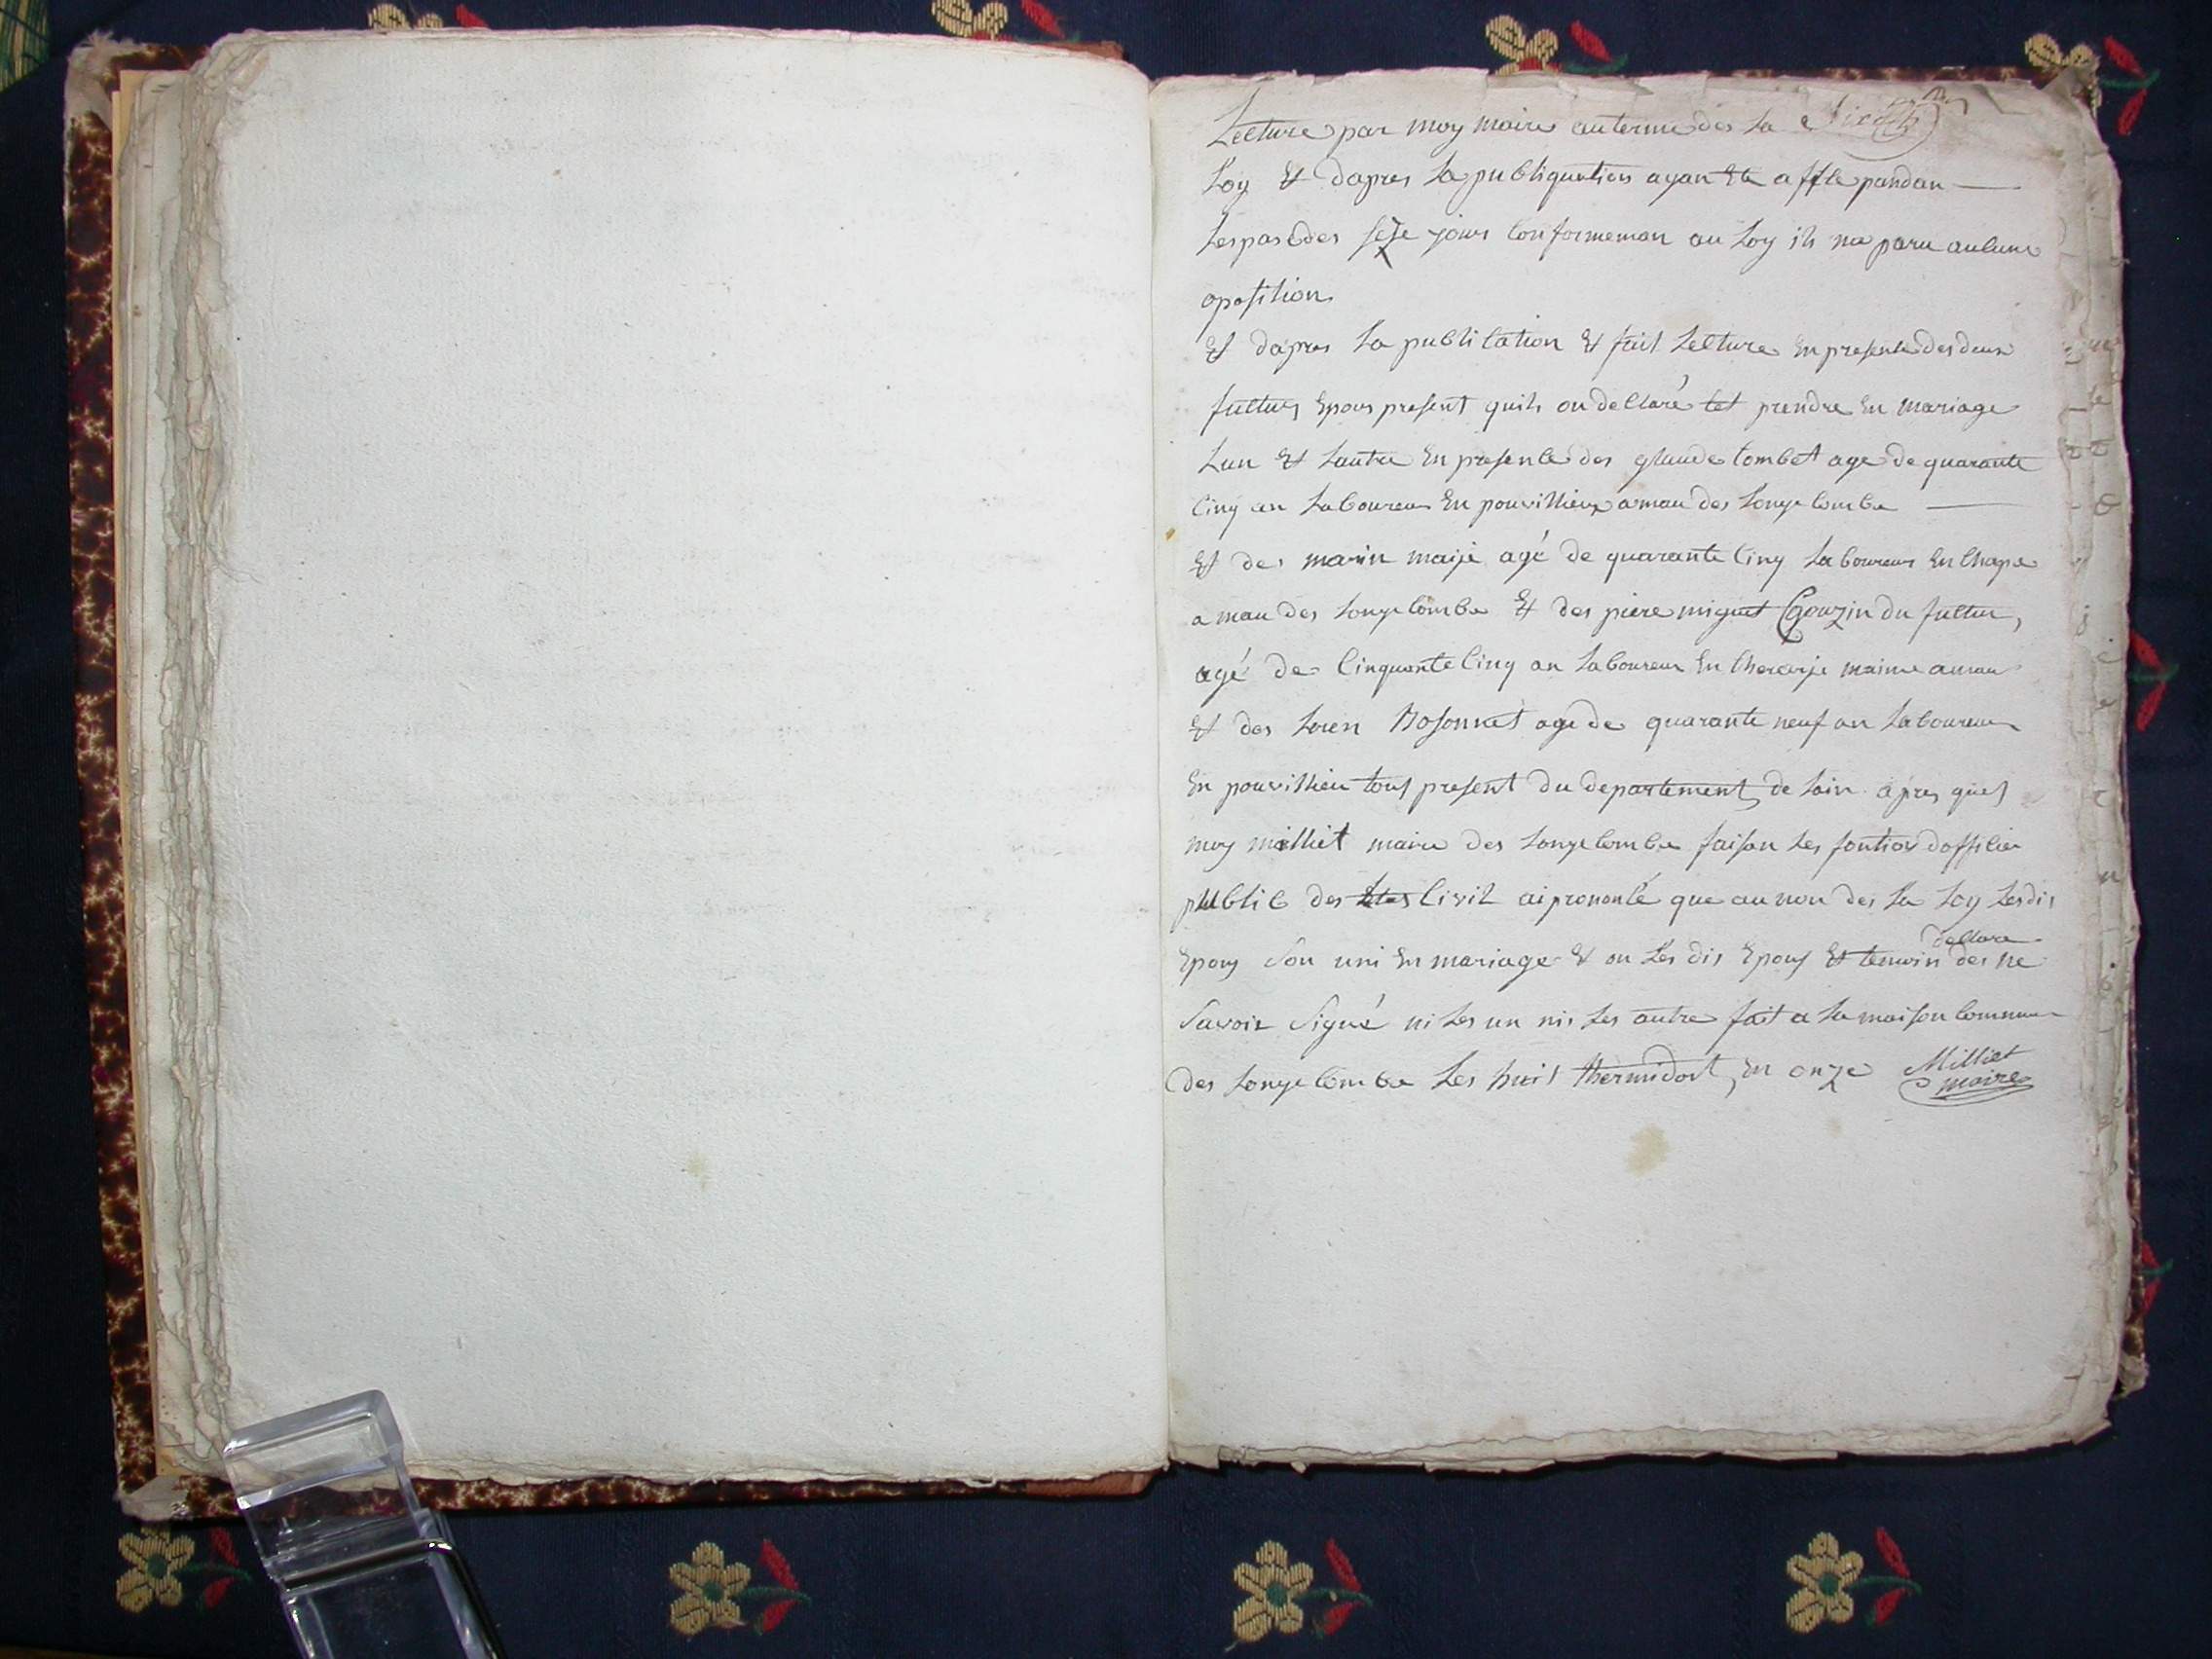 Lecture par moy maire au terme des la Six
Loy Et dapres la publiquation ayan Ete affle pandan
Lespasedes seze jours Conformeman au Loy ils na paru aucune
oposition
Et dapres la publication Et fait Lecture En presence des deux
futturs Epous present quils on declaré tet prendre En mariage
Lun Et Lautre En presence des glaude Combet age de quarante
Cinq an Laboureur En pouvillieux amau des Longecombe
Et des marin maijé agé de quarante Cinq Laboureur En Chape
a mau des Longecombe Et des piere miguet Couzin du futtur,
agé de Cinquante Cinq an Laboureur En maime amau
Et des Loren Bosonnet age de quarante neuf an Laboureur
En pouvillieu tous present du departement de Lain apres ques
moy milliet maire des Longecombe faisan Les fontion dofficier
public des Etas Civil ai prononcé que au non des La Loy Lesdis
Epous Son uni En mariage Et on Les dis Epous Et temoin declare des ne
Savoir Signé ni Les un nis Les autre fait a La maison Commune
des Longecombe Les huit thermidort, En onze Milliet
maire